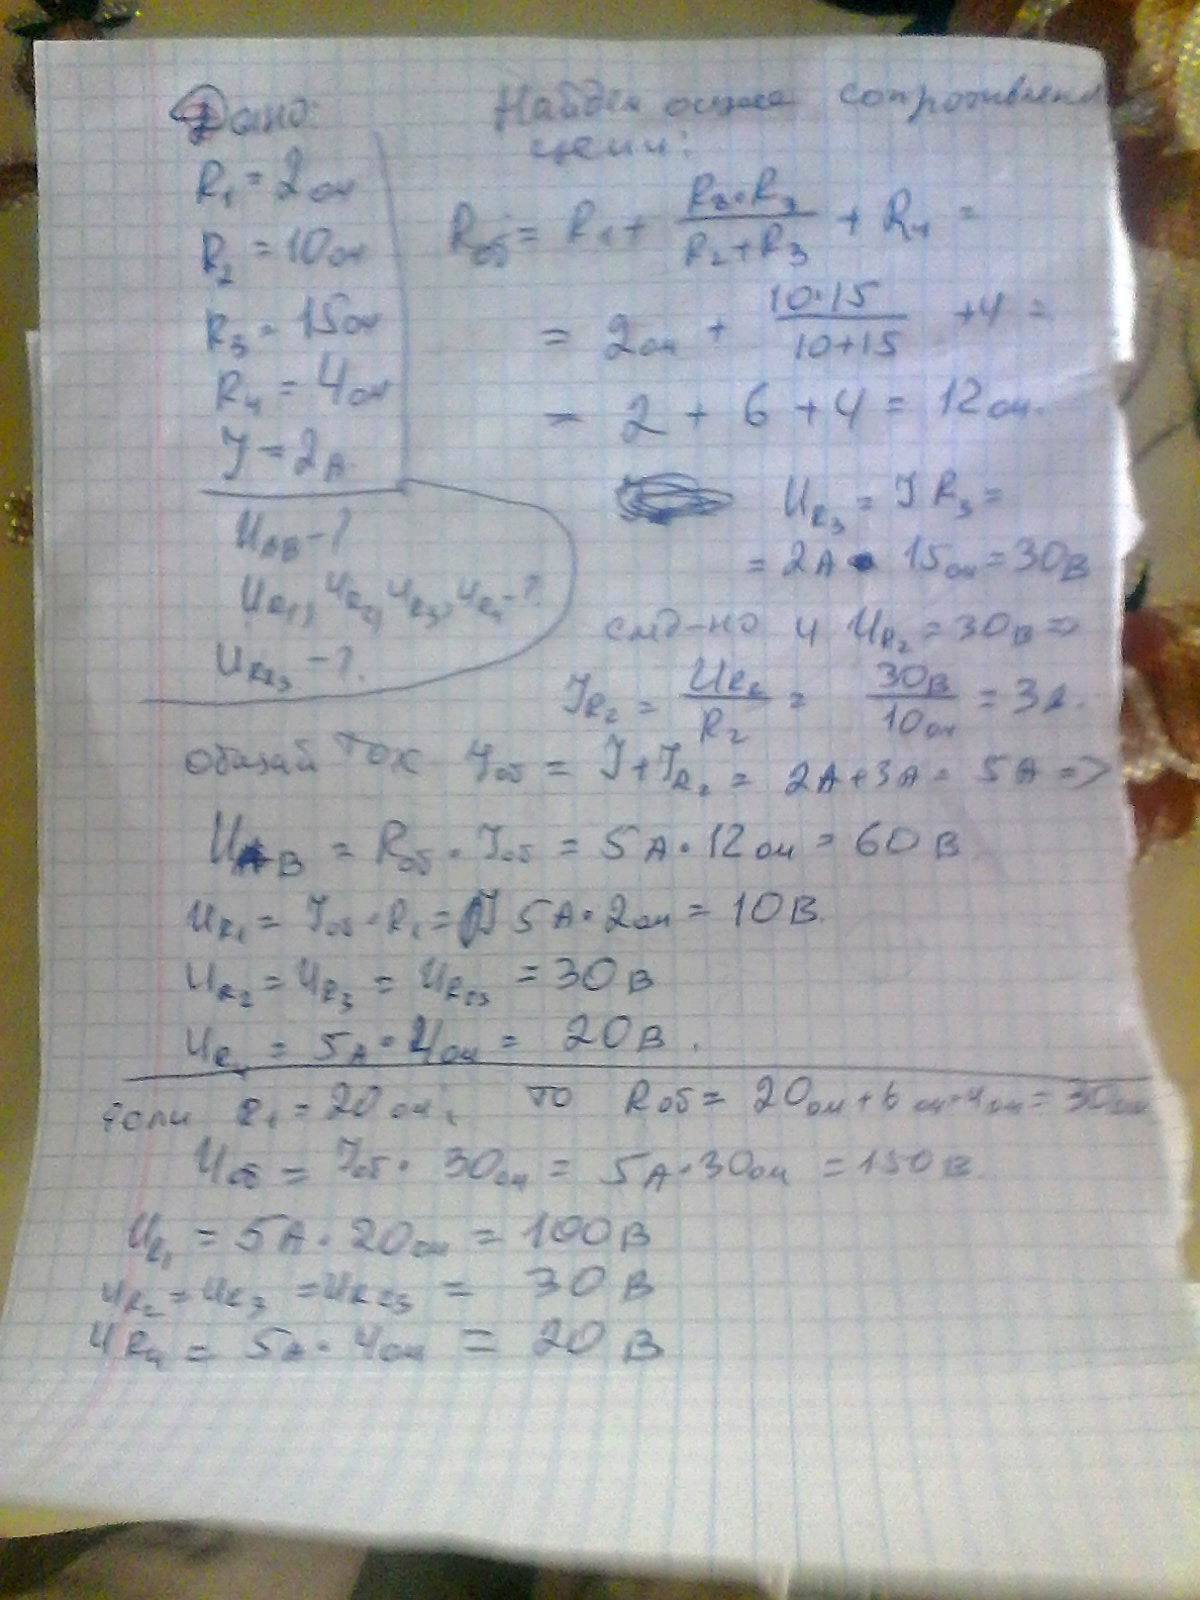 Дано:
R₁ = 2 ом
R₂ = 10 ом
R₃ = 15 ом
R₄ = 4 ом
J = 2 А
U_AB - ?
U_R₁, U_R₂, U_R₃, U_R₄ - ?
U_R₂₃ - ?
Найдем общее
цепи:
Rоб = R₁ + (R₂·R₃)/(R₂+R₃) + R₄ =
= 2 ом + (10·15)/(10+15) + 4 =
= 2 + 6 + 4 = 12 ом.
U_R₃ = J R₃ =
= 2А · 15 ом = 30 В
слд-но и U_R₂ = 30 в =>
J_R₂ = U_R₂/R₂ = 30в/10ом = 3А.
общий ток Jоб = J + J_R₂ = 2А + 3А = 5А =>
U_AB = Rоб · Jоб = 5А · 12 ом = 60 В
U_R₁ = Jоб · R₁ = 5А · 2 ом = 10 В.
U_R₂ = U_R₃ = U_R₂₃ = 30 В
U_R₄ = 5А · 4 ом = 20 В.
Если R₁ = 20 ом, то Rоб = 20 ом + 6 ом + 4 ом = 30 ом
Uоб = Jоб · 30 ом = 5А · 30 ом = 150 В.
U_R₁ = 5А · 20 ом = 100 В
U_R₂ = U_R₃ = U_R₂₃ = 30 В
U_R₄ = 5А · 4 ом = 20 В